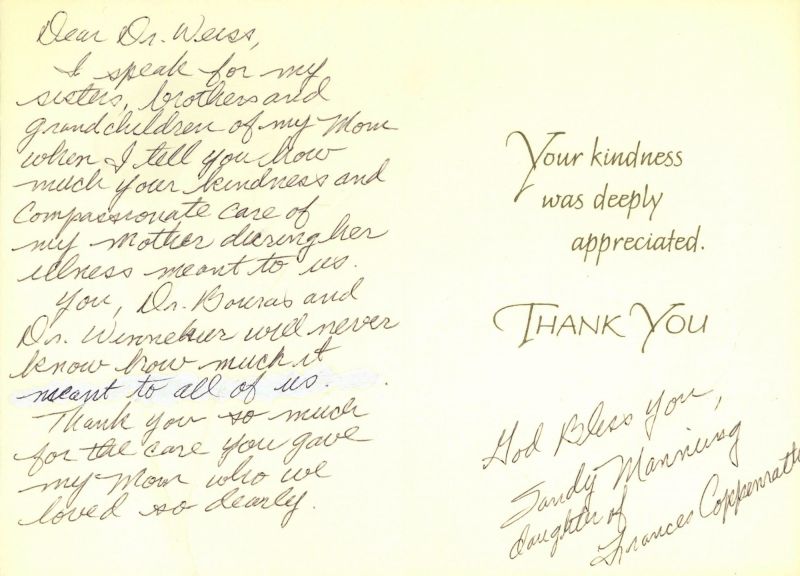 Dear Dr. Weiss,
I speak for my
sisters, brothers and
grandchildren of my Mom
when I tell you how
much your kindness and
compassionate care of
my mother during her
illness meant to us.
You, Dr. Bouras and
Dr. Winnekur will never
know how much it
meant to all of us.
Thank you so much
for the care you gave
my Mom who we
loved so dearly.
Your kindness
was deeply
appreciated.
THANK YOU
God Bless You,
Sandy Manning
daughter of
Frances